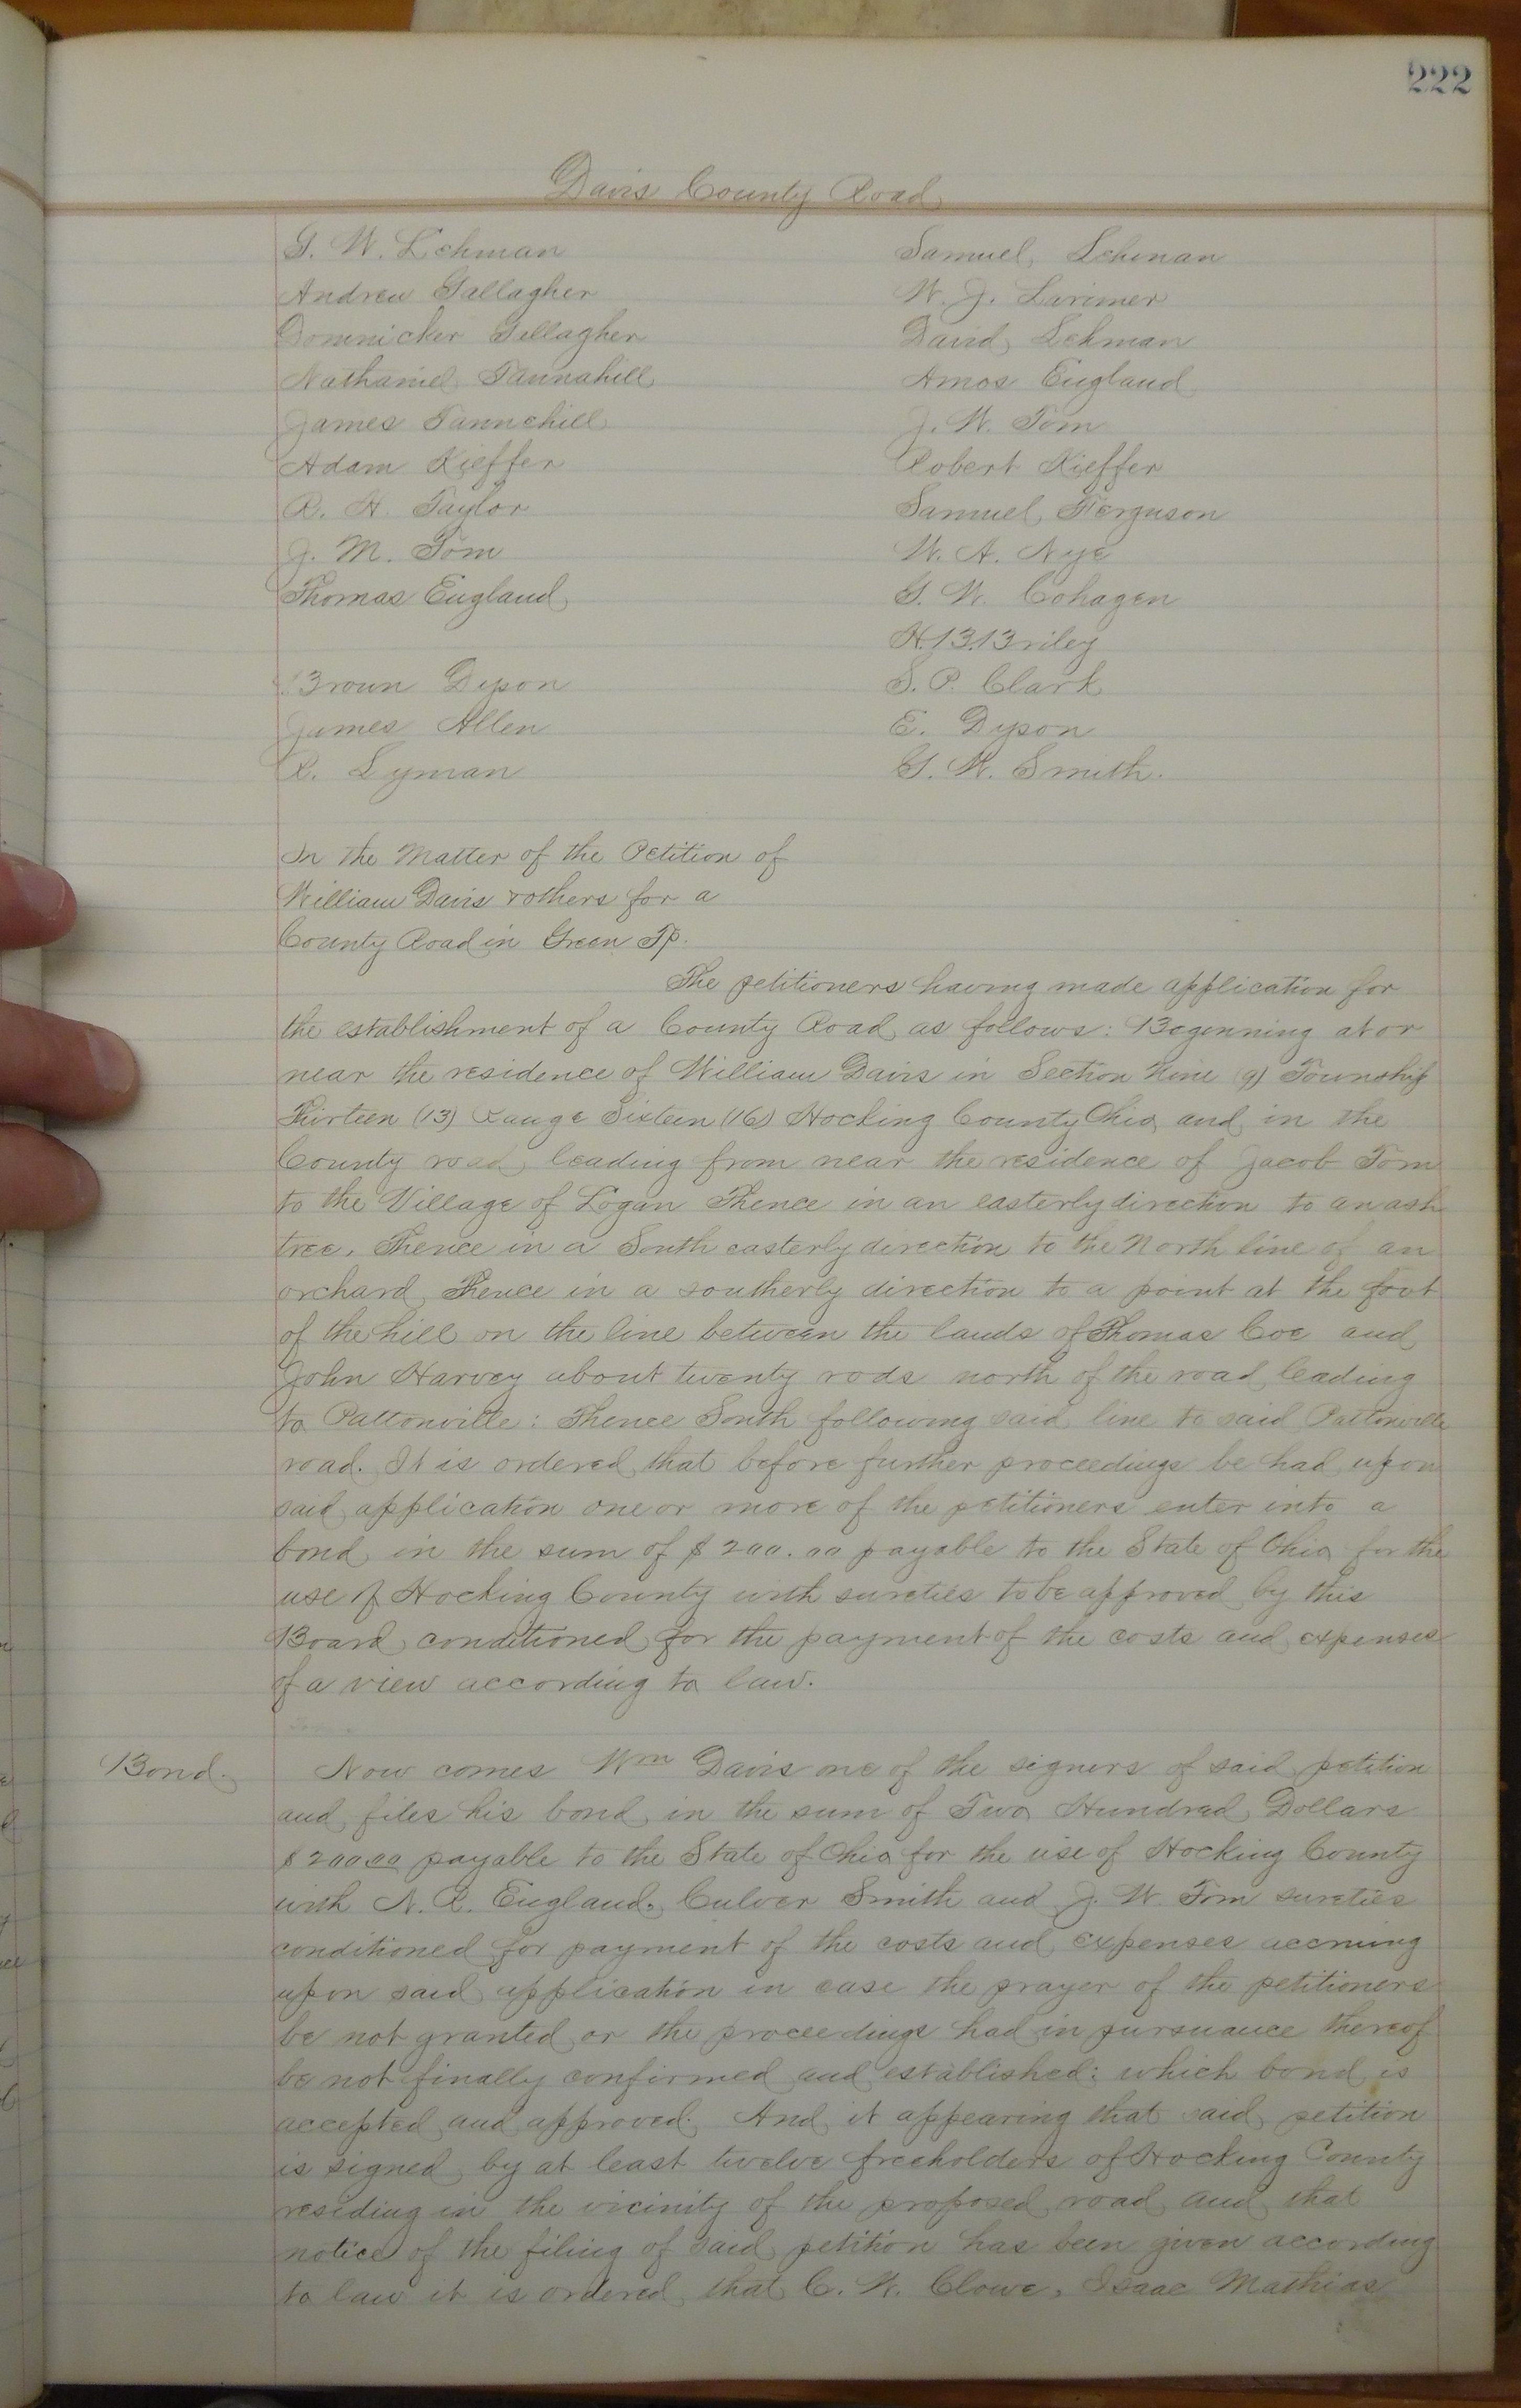 222
Davis County Road
G. W. Lehman
Samuel Lehman
Andrew Gallagher
W. J. Larimer
Domnicker Gellagher
David Lehman
Nathaniel Tannahill
Amos England
James Tannehill
J. W. Tom
Adam Kieffer
Robert Kieffer
R. H. Taylor
Samuel Ferguson
J. M. Tom
W. A. Nye
Thomas England
G. W. Cohagen
H. B. Briley
Brown Dyson
S. P. Clark
James Allen
E. Dyson
R. Lyman
G. W. Smith.
In the Matter of the Petition of
William Davis & others for a
County Road in Green Tp.
The petitioners having made application for
the establishment of a County Road as follows: Beginning at or
near the residence of William Davis in Section Nine (9) Township
Thirteen (13) Range Sixteen (16) Hocking County Ohio and in the
County road leading from near the residence of Jacob Tom
to the Village of Logan Thence in an easterly direction to an ash
tree. Thence in a South easterly direction to the North line of an
orchard Thence in a southerly direction to a point at the foot
of the hill on the line between the lands of Thomas Coe and
John Harvey about twenty rods north of the road leading
to Pattonville: Thence South following said line to said Pattonville
road. It is ordered that before further proceedings be had upon
said application one or more of the petitioners enter into a
bond in the sum of $200.00 payable to the State of Ohio for the
use of Hocking County with sureties to be approved by this
Board conditioned for the payment of the costs and expenses
of a view according to law.
Bond.
Now comes Wm Davis one of the signers of said petition
and files his bond in the sum of Two Hundred Dollars
$20000 payable to the State of Ohio for the use of Hocking County
with N. R. England, Culver Smith and J. W. Tom sureties
conditioned for payment of the costs and expenses accruing
upon said application in case the prayer of the petitioners
be not granted or the proceedings had in pursuance thereof
be not finally confirmed and established; which bond is
accepted and approved. And it appearing that said petition
is signed by at least twelve freeholders of Hocking County
residing in the vicinity of the proposed road and that
notice of the filing of said petition has been given according
to law it is ordered that C. W. Clowe, Isaac Mathias